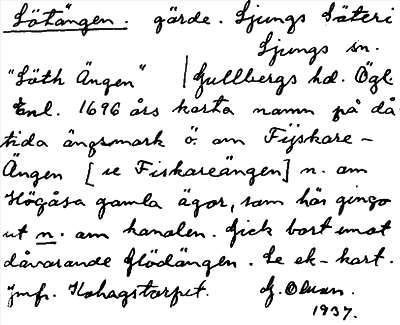 Sötängen. gärde. Ljungs Säteri
Ljungs sn.
"Söth Ängen" | Gullbergs hd. Ögl.
Enl. 1696 års karta namn på då-
tida ängsmark ö. om Fijskare-
Ängen [se Fiskareängen] n. om
Högåsa gamla ägor, som här gingo
ut n. om kanalen. Gick bort emot
dåvarande Flödängen. Se ek-kart.
Jmfr. Kohagstorpet. G. Olsson.
1937.